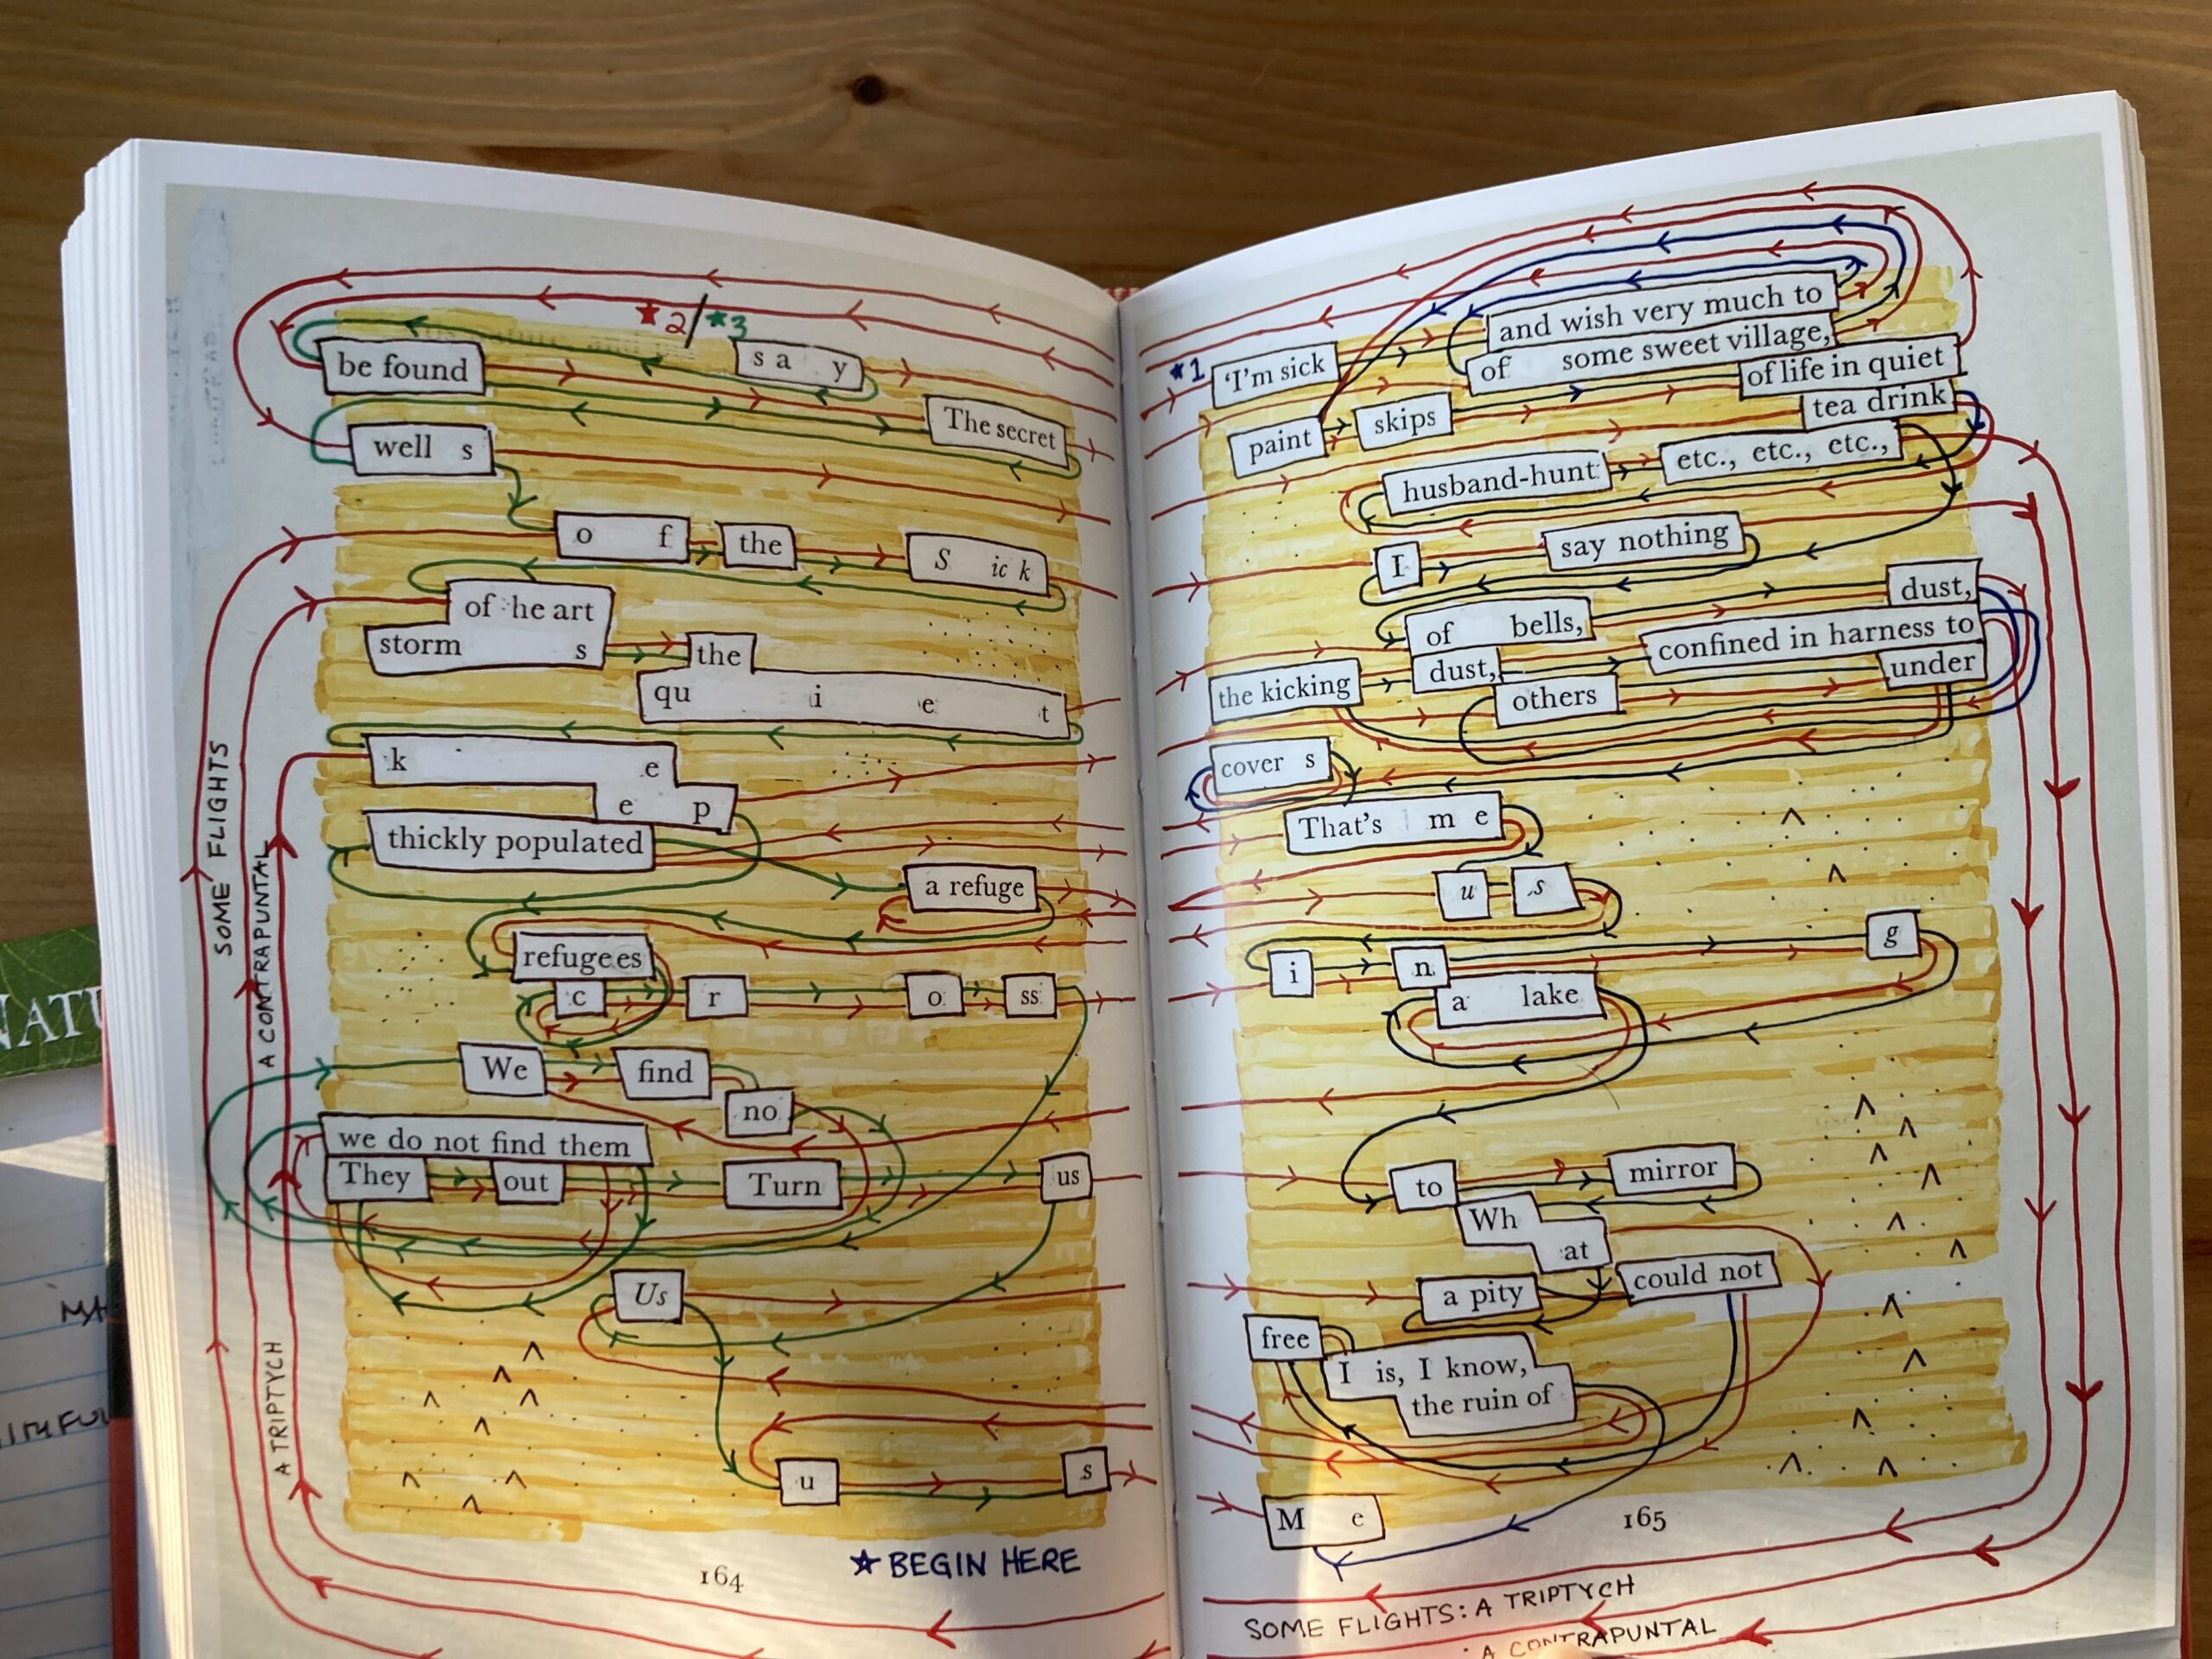 *2/*3
be found
s a y
The secret
well s
o f the S ick
of he art
storm s the
qu i e t
k e
e p
thickly populated
a refuge
refugees
c r o ss
We find
no
we do not find them
They out Turn us
Us
u s
164
★ BEGIN HERE
SOME FLIGHTS
A CONTRAPUNTAL
A TRIPTYCH
*1
'I'm sick and wish very much to
of some sweet village,
of life in quiet
paint skips
tea drink
husband-hunt etc., etc., etc.,
I say nothing
dust,
of bells,
confined in harness to
the kicking dust,
under
others
cover s
That's m e
u s
i n g
a lake
to mirror
Wh
at
a pity could not
free
I is, I know,
the ruin of
M e
165
SOME FLIGHTS: A TRIPTYCH
: A CONTRAPUNTAL